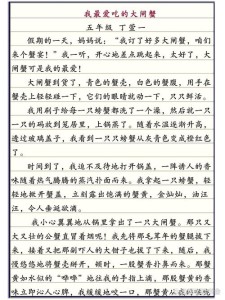 我最爱吃的大闸蟹
五年级 丁萱一
假期的一天,妈妈说:“我订了好多大闸蟹,咱们
来个蟹宴!”我一听,开心地差点跳起来,太好了,大
闸蟹可是我的最爱!
大闸蟹到货了,青色的蟹壳,白色的蟹腹,用手在
蟹壳上轻轻碰一下,它们的眼睛就动一下,只只鲜活。
我用刷子给每一只螃蟹都洗了一个澡,然后就一只
一只的码放到笼屉里,上锅蒸了。随着水温逐渐升高,
透过玻璃盖子,我看到一只只螃蟹从青色变成橙红色
了。
时间到了,我迫不及待地打开锅盖,一阵诱人的香
味随着热气腾腾的蒸汽扑面而来。我拿起一只螃蟹,轻
轻地掀开蟹盖,立刻露出饱满的蟹黄,金灿灿,油汪
汪,令人垂涎欲滴。
我小心翼翼地从锅里拿出了一只大闸蟹。那只又
大又壮的公蟹真冒着烟呢!我先将那毛茸茸的蟹腿拔下
来,接着又把那剐吓人的大钳子也拔了下来,随后,我
慢悠悠地将蟹壳翻开,顿时,一股蟹香扑鼻而来。那蟹
黄如水似的“哗哗”地往我的手指上滴,那股蟹黄的香
味立即沁人心脾,我缓缓地咬一口,那蟹黄